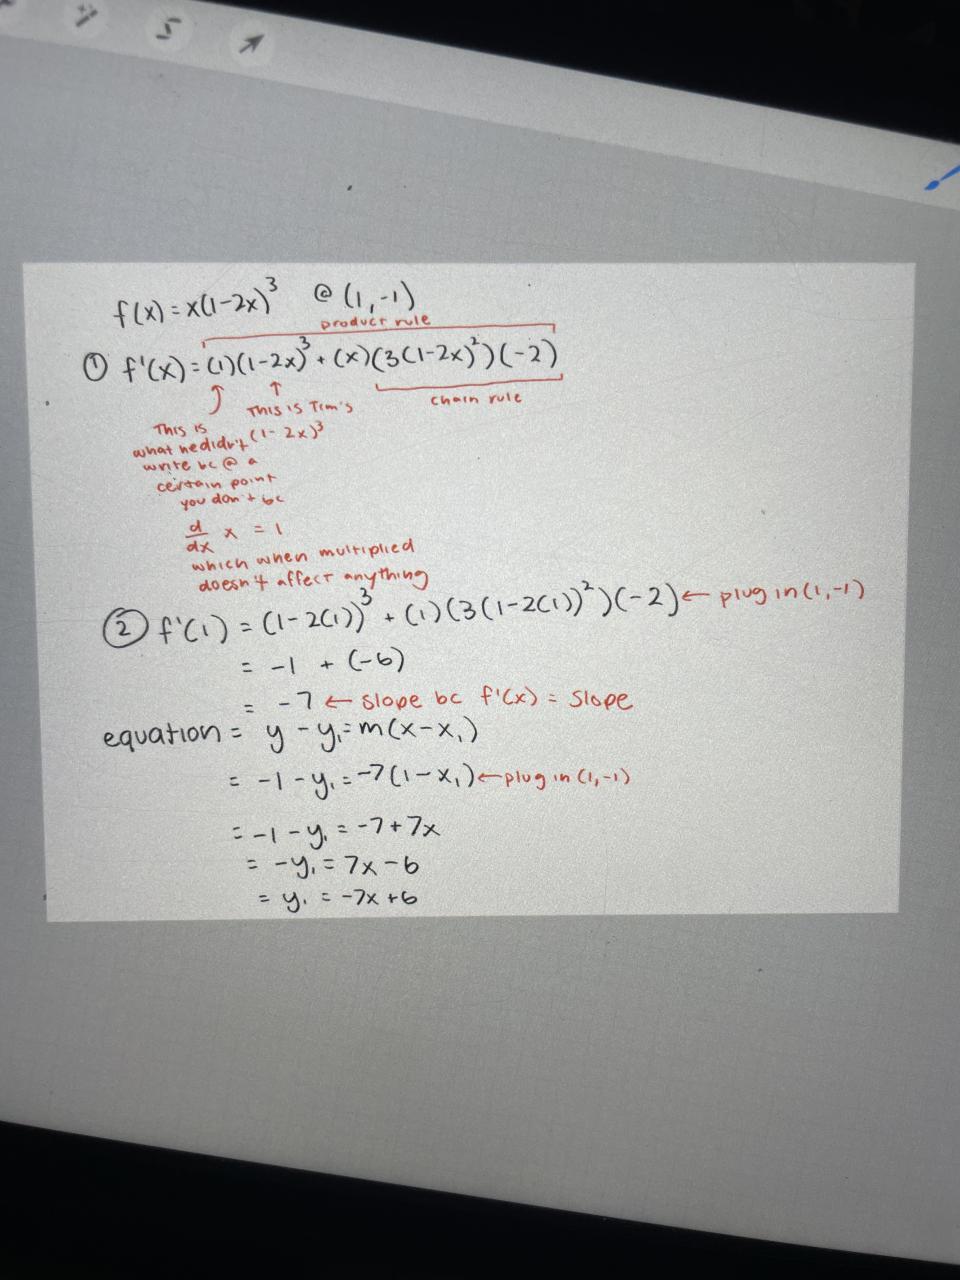 f(x) = x(1-2x)³ @ (1,-1)
product rule
① f'(x) = (1)(1-2x)³ + (x)(3(1-2x)²)(-2)
chain rule
This is Tim's
(1-2x)³
This is
what he didn't
write bc @ a
certain point
you don't bc
d/dx x = 1
which when multiplied
doesn't affect anything
② f'(1) = (1-2(1))³ + (1)(3(1-2(1))²)(-2) ← plug in (1,-1)
= -1 + (-6)
= -7 ← slope bc f'(x) = slope
equation = y - y₁ = m(x-x₁)
= -1 - y₁ = -7(1-x₁) ← plug in (1,-1)
= -1 - y₁ = -7+7x
= -y₁ = 7x-6
= y₁ = -7x+6